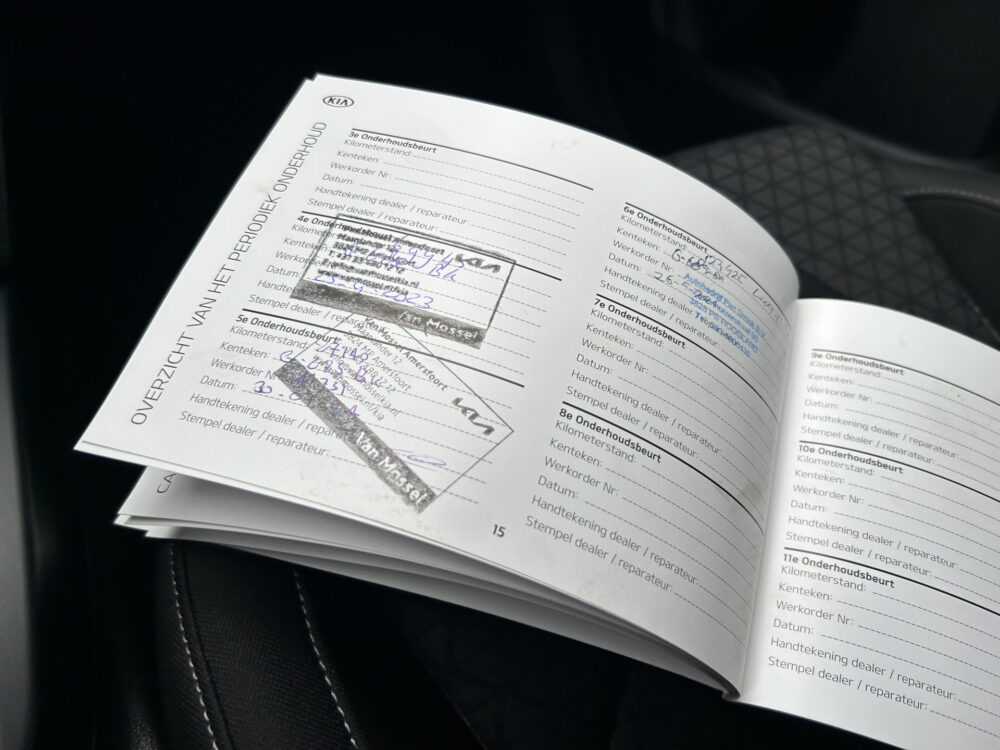 KIA
OVERZICHT VAN HET PERIODIEK ONDERHOUD
3e Onderhoudsbeurt
Kilometerstand:
Kenteken:
Werkorder Nr:
Datum:
Handtekening dealer / reparateur:
Stempel dealer / reparateur:
4e Onderhoudsbeurt
Maanlander 12
3824 MP Amersfoort
www.vanmossel.nl/kia
KIA
Van Mossel
Datum: 25-9-2023
Stempel dealer / reparateur:
5e Onderhoudsbeurt
Kilometerstand:
Kenteken:
Werkorder Nr
Datum: 30
Handtekening dealer / reparateur:
Stempel dealer / reparateur:
Van Mossel Amersfoort
Maanlander 12
3824 MP Amersfoort
KIA
Van Mossel
15
6e Onderhoudsbeurt
Kilometerstand:
Kenteken:
Werkorder Nr:
Datum:
Handtekening dealer / reparateur:
Stempel dealer / reparateur:
Autobedrijf Piet Smink B.V.
7e Onderhoudsbeurt
Kilometerstand:
Kenteken:
Werkorder Nr:
Datum:
Handtekening dealer / reparateur:
Stempel dealer / reparateur:
8e Onderhoudsbeurt
Kilometerstand:
Kenteken:
Werkorder Nr:
Datum:
Handtekening dealer / reparateur:
Stempel dealer / reparateur:
9e Onderhoudsbeurt
Kilometerstand:
Kenteken:
Werkorder Nr:
Datum:
Handtekening dealer / reparateur:
Stempel dealer / reparateur:
10e Onderhoudsbeurt
Kilometerstand:
Kenteken:
Werkorder Nr:
Datum:
Handtekening dealer / reparateur:
Stempel dealer / reparateur:
11e Onderhoudsbeurt
Kilometerstand:
Kenteken:
Werkorder Nr:
Datum:
Handtekening dealer / reparateur:
Stempel dealer / reparateur:
CA